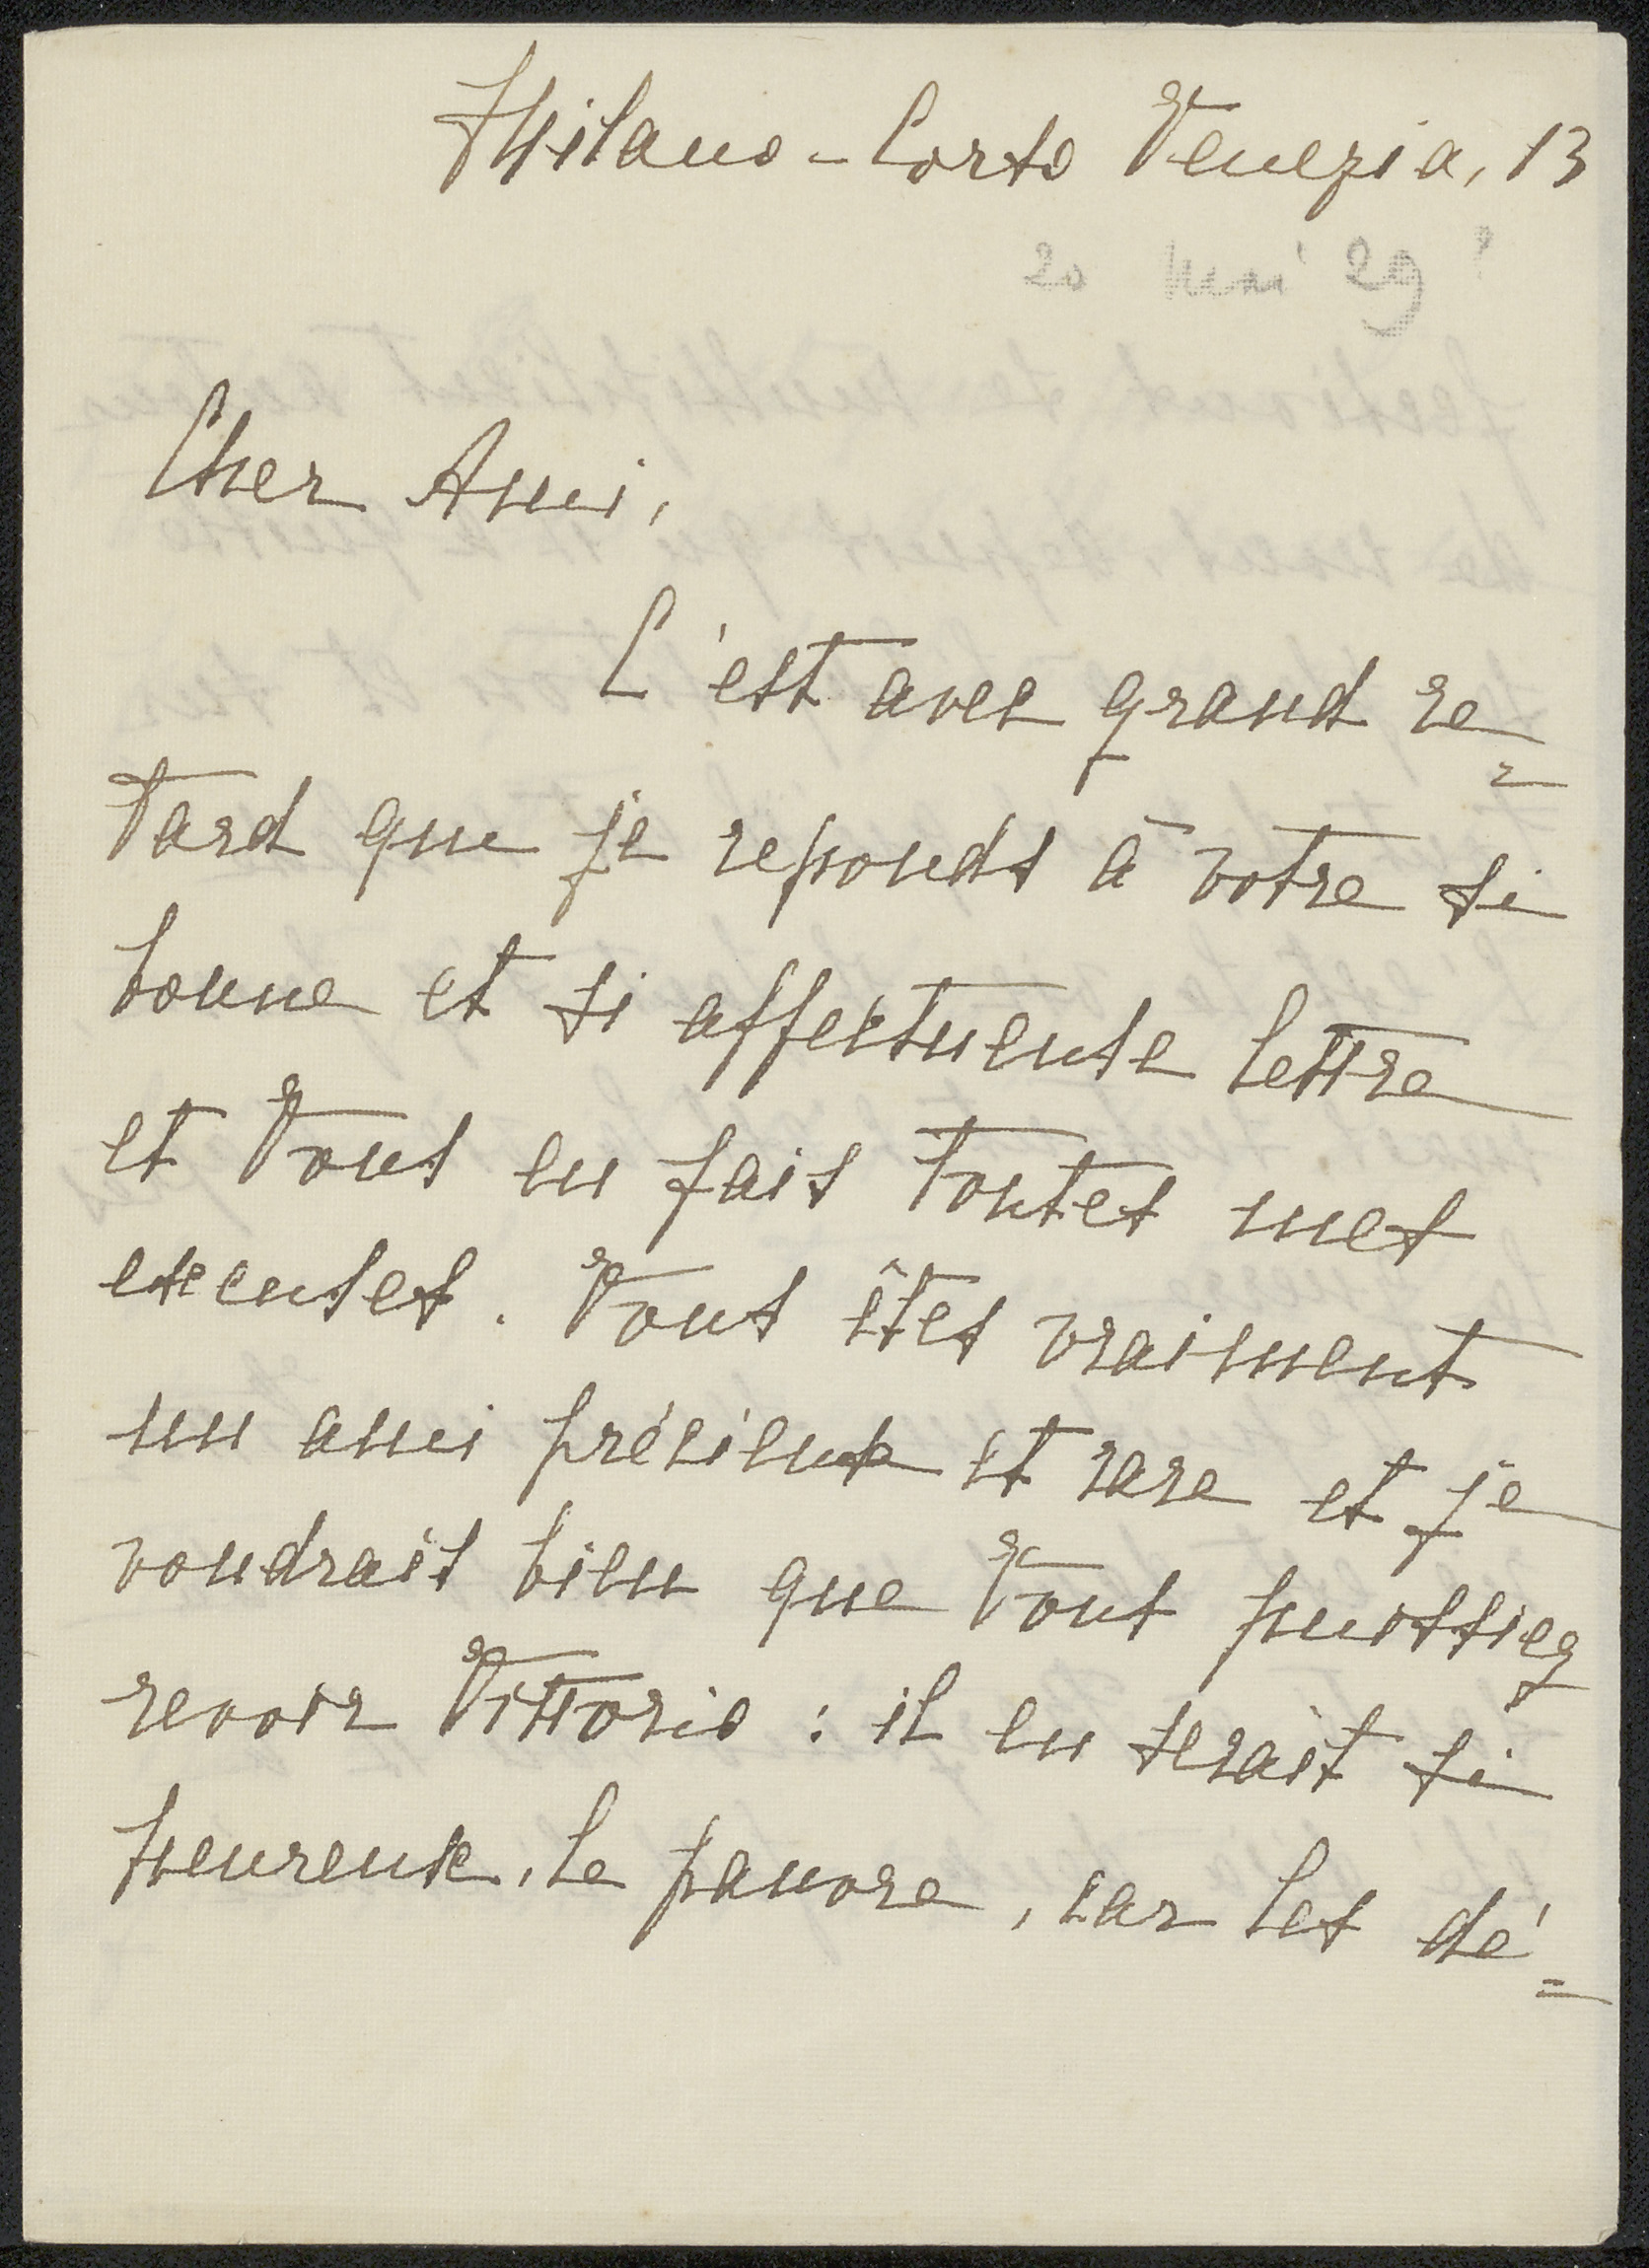 Milano - Corso Venezia, 13
20 mai 29?
Cher Ami,
C'est avec grand re=
tard que je reponds à votre si
bonne et si affectueuse lettre
et Vous en fais toutes mes
excuses. Vous êtes vraiment
un ami précieux et rare et je
voudrais bien que Vous puissiez
revoir Vittorio : il en serait si
heureux, le pauvre, car les dé=